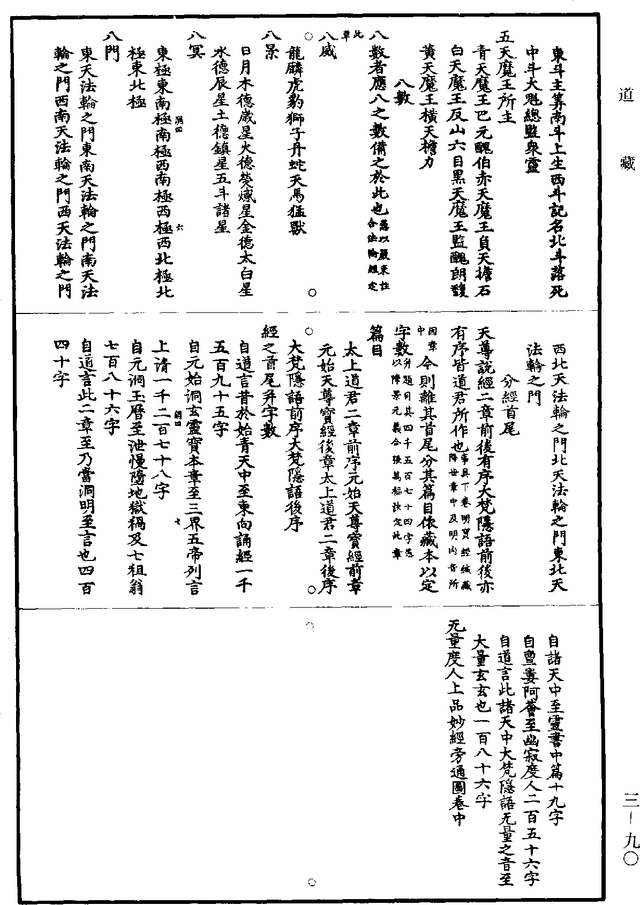 道藏
東斗主筭南斗上生西斗記名北斗落死
中斗大魁總監衆靈
五天魔王所主
青天魔王巴元醜伯赤天魔王負天擔石
白天魔王反山六目黑天魔王監醜朗馥
黃天魔王橫天擔力
八數
八數者應八之數備之於此也
此章
八威
龍麟虎豹獅子丹蛇天馬猛獸
八景
日月木德歲星火德熒惑星金德太白星
水德辰星土德鎮星五斗諸星
八冥
東極東南極南極西南極西極西北極北
極東北極
八門
東天法輪之門東南天法輪之門南天法
輪之門西南天法輪之門西天法輪之門
西北天法輪之門北天法輪之門東北天
法輪之門
分經首尾
天尊說經二章前後有序大梵隱語前後亦
有序皆道君所作也
因章中今則離其首尾分其篇目依藏本以定
字數
篇目
太上道君二章前序元始天尊寶經前章
元始天尊寶經後章太上道君二章後序
大梵隱語前序大梵隱語後序
經之首尾并字數
自道言昔於始青天中至東向誦經一千
五百九十五字
自元始洞玄靈寶本章至三界五帝列言
上清一千二百七十八字
自元洞玉曆至泄慢墮地獄禍及七祖翁
七百八十六字
自道言此二章至乃當洞明至言也四百
四十字
自諸天中至靈書中篇十九字
自亶婁阿薈至幽寂度人二百五十六字
自道言此諸天中大梵隱語无量之音至
大量玄玄也一百八十六字
无量度人上品妙經旁通圖卷中
三—九〇